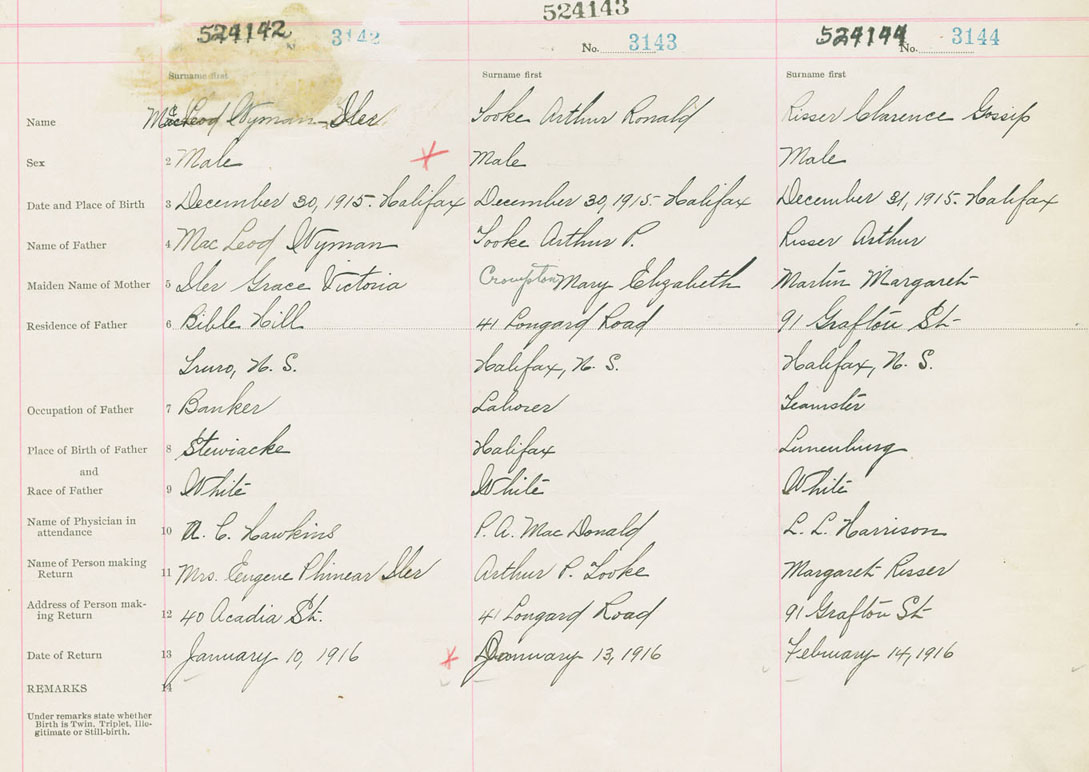 524142 3142 524143 No. 3143 524144 No. 3144
Surname first Surname first Surname first
Name MacLeod Wyman Iler Tooke Arthur Ronald Risser Clarence Gossip
Sex 2 Male Male Male
Date and Place of Birth 3 December 30, 1915. Halifax December 30, 1915. Halifax December 31, 1915. Halifax
Name of Father 4 Mac Leod Wyman Tooke Arthur P. Risser Arthur
Maiden Name of Mother 5 Iler Grace Victoria Crompton Mary Elizabeth Martin Margaret
Residence of Father 6 Bible Hill 41 Longard Road 91 Grafton St
Truro, N. S. Halifax, N. S. Halifax, N. S.
Occupation of Father 7 Banker Laborer Teamster
Place of Birth of Father 8 Stewiacke Halifax Lunenburg
and
Race of Father 9 White White White
Name of Physician in
attendance 10 A. C. Hawkins P. A. Mac Donald L. L. Harrison
Name of Person making
Return 11 Mrs. Eugene Phinear Iler Arthur P. Tooke Margaret Risser
Address of Person mak-
ing Return 12 40 Acadia St. 41 Longard Road 91 Grafton St
Date of Return 13 January 10, 1916 January 13, 1916 February 14, 1916
REMARKS 14
Under remarks state whether
Birth is Twin, Triplet, Ille-
gitimate or Still-birth.